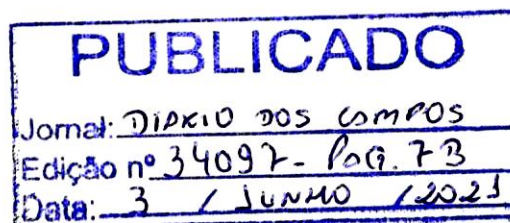 PUBLICADO
Jornal: DIARIO DOS CAMPOS
Edição nº 34097 - PAG. 7B
Data: 3 / JUNHO / 2021